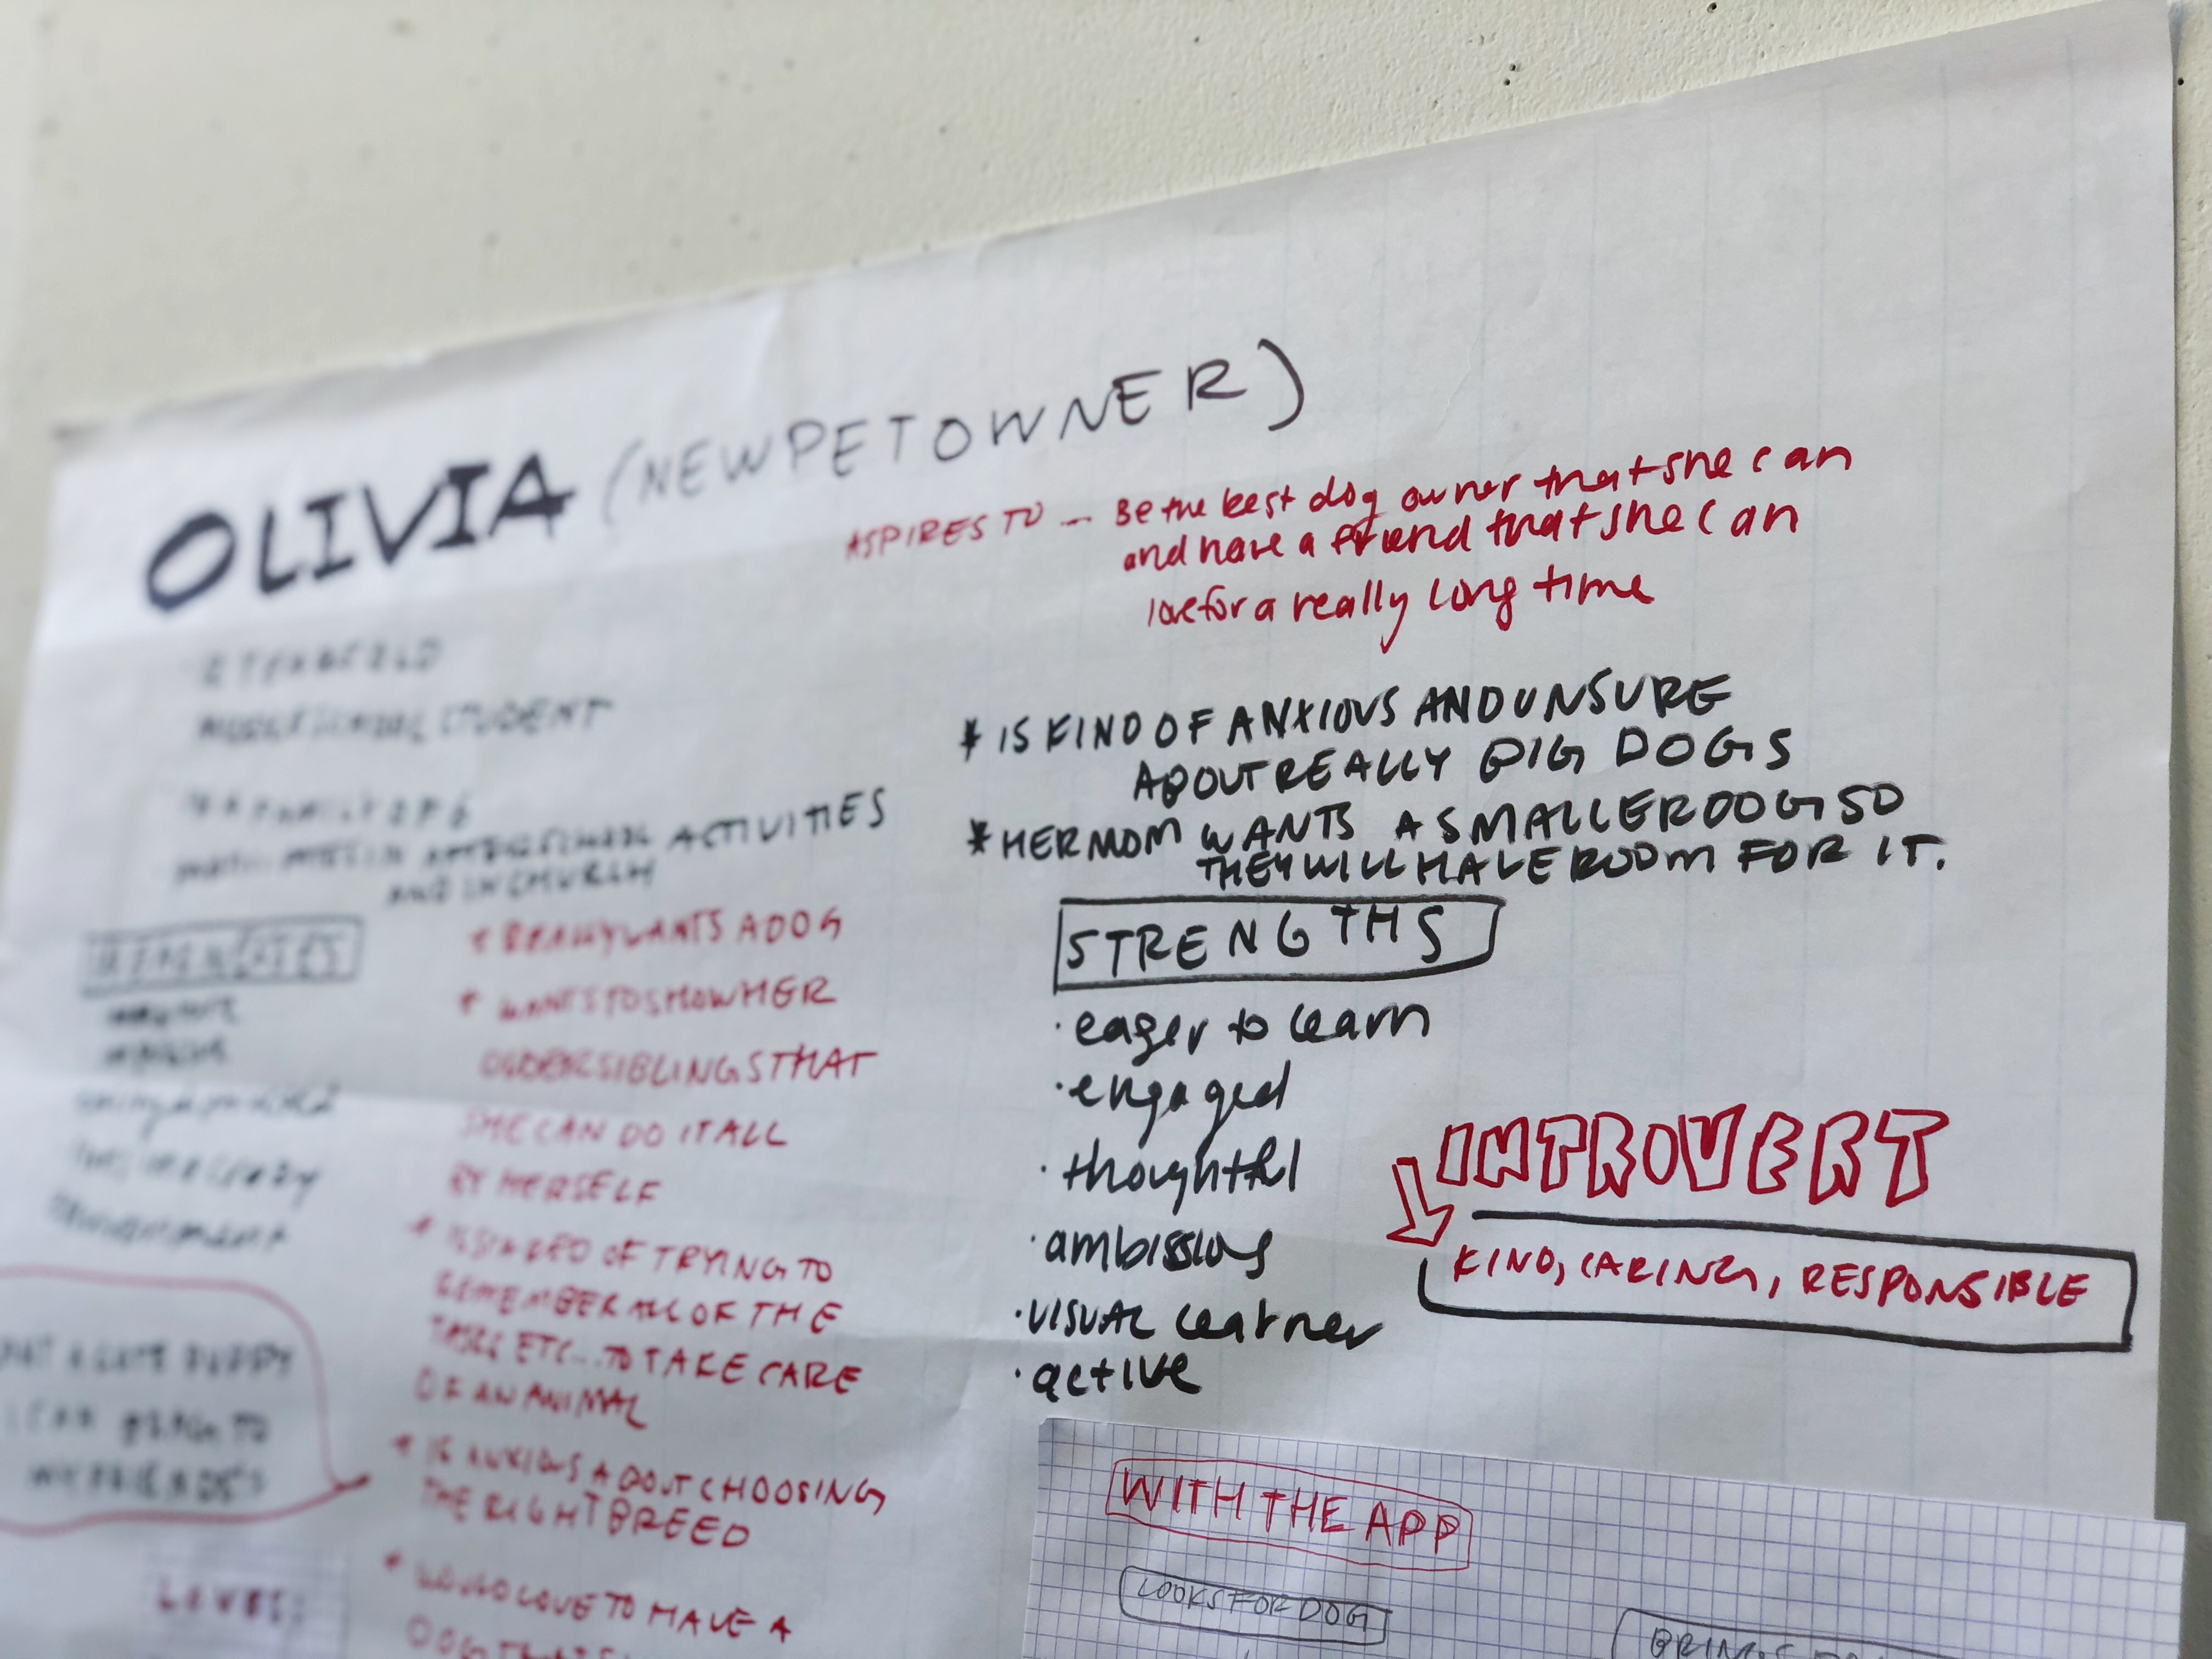 OLIVIA (NEW PET OWNER)
ASPIRES TO — Be the best dog owner that she can
and have a friend that she can
love for a really long time
MIDDLE SCHOOL STUDENT
AFTER SCHOOL ACTIVITIES
AND IN CHURCH
* REALLY WANTS A DOG
* WANTS TO SHOW HER
OLDER SIBLINGS THAT
SHE CAN DO IT ALL
BY HERSELF
* IS SCARED OF TRYING TO
REMEMBER ALL OF THE
TASKS ETC... TO TAKE CARE
OF AN ANIMAL
* IS ANXIOUS ABOUT CHOOSING
THE RIGHT BREED
* WOULD LOVE TO HAVE A
DOG THAT
A CUTE PUPPY
I CAN BRING TO
MY FRIENDS
LOVES:
* IS KIND OF ANXIOUS AND UNSURE
ABOUT REALLY BIG DOGS
* HER MOM WANTS A SMALLER DOG SO
THEY WILL HAVE ROOM FOR IT.
STRENGTHS
· eager to learn
· engaged
· thoughtful
· ambissios
· VISUAL learner
· active
INTROVERT
KIND, CARING, RESPONSIBLE
WITH THE APP
LOOKS FOR DOG